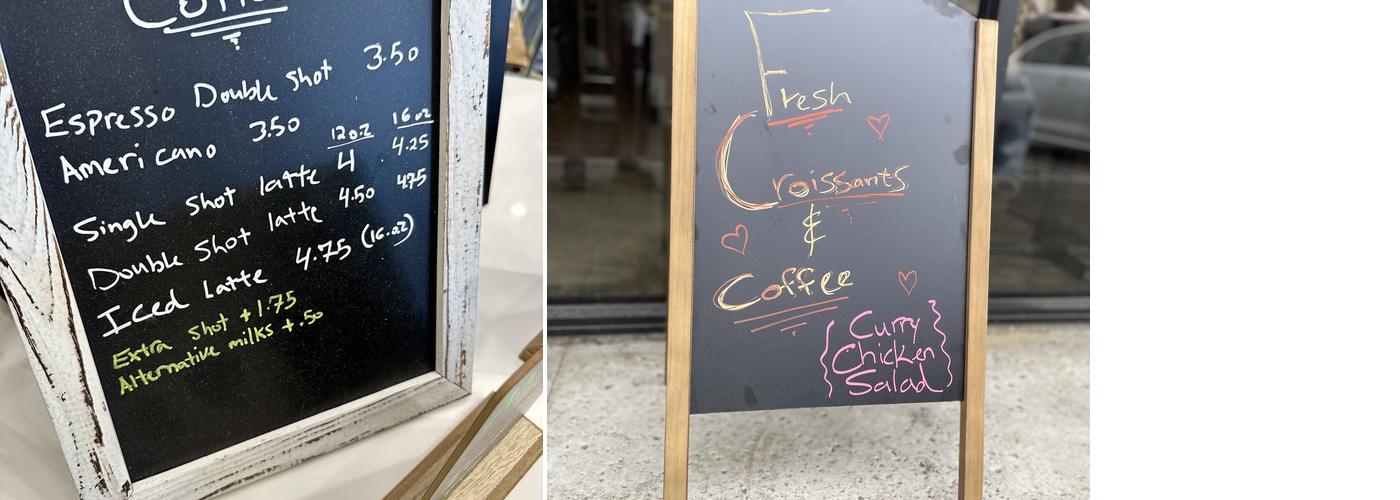 Coffee
Espresso Double Shot 3.50
Americano 3.50
12oz 16oz
Single Shot latte 4 4.25
Double Shot latte 4.50 4.75
Iced Latte 4.75 (16.oz)
Extra Shot +1.75
Alternative milks +.50
Fresh
Croissants
&
Coffee
{Curry
Chicken
Salad}